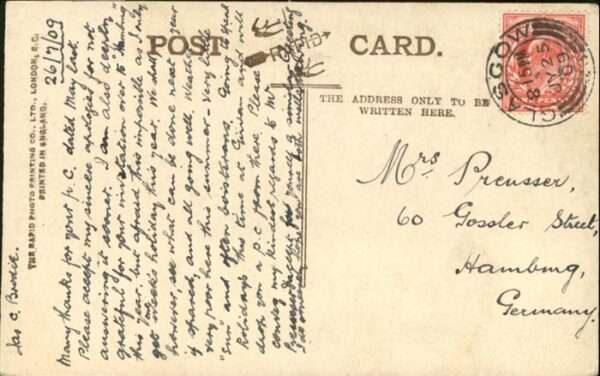 POST CARD.
RAPID
THE ADDRESS ONLY TO BE
WRITTEN HERE.
GLASGOW
8.15 AM
JY 25
09
Mrs Preusser,
60 Gossler Street,
Hamburg,
Germany.
THE RAPID PHOTO PRINTING CO., LTD., LONDON, E.C.
PRINTED IN ENGLAND.
26/7/09
Many thanks for your p.c. dated May last.
Please accept my sincere apologies for not
answering it sooner. I am also deeply
grateful for your invitation over to "Hamburg
this year but afraid this impossible as I only
get weeks holiday this year. We shall
however, see what can be done next year
if spared, and all going well. Weather
very poor here this summer - very little
"sun" and often boisterous. Going to spend
Holidays this time at Girvan and will
drop you a p.c. from there. Please
convey my kindest regards to Mr
Preusser & accept for yourself
I do you are both
Jas C. Brodie.